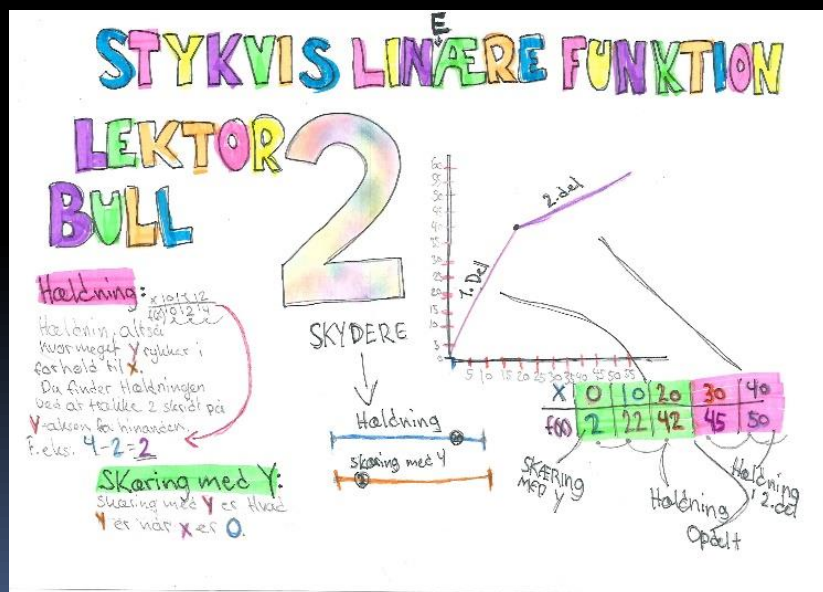 E
STYKVIS LINÆRE FUNKTION
LEKTOR
BULL
2
SKYDERE
Hældning
20
skæring med Y
2
Hældning:
X 0 1 2
f(x) 0 2 4
Hældnin, altså
hvor meget Y rykker i
forhold til X.
Du finder Hældningen
ved at trække 2 skridt på
Y-aksen fra hinanden.
F.eks. 4-2=2
Skæring med Y:
Skæring med Y er Hvad
Y er når X er 0.
60
55
50
45
40
35
30
25
20
15
10
5
0
5 10 15 20 25 30 35 40 45 50 55
1. Del
2. del
X 0 10 20 30 40
f(x) 2 22 42 45 50
SKÆRING
MED Y
Hældning
Opdelt
Hældning
i 2. del